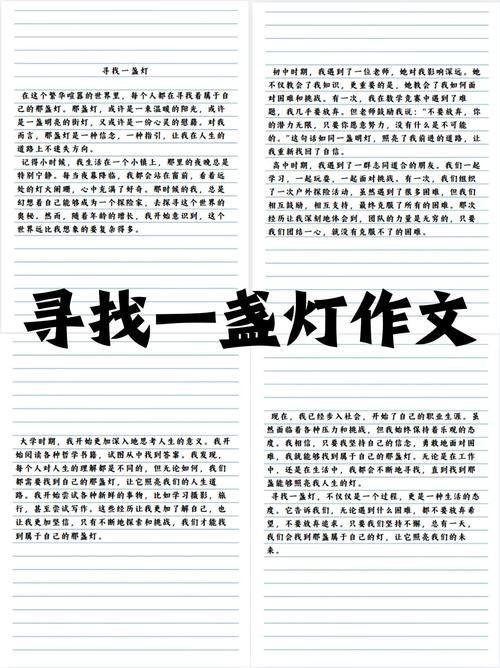 寻找一盏灯
在这个繁华喧嚣的世界里，每个人都在寻找着属于自
己的那盏灯。那盏灯，或许是一束温暖的阳光，或许
是一盏明亮的街灯，又或许是一份心灵的慰藉。对我
而言，那盏灯是一种信念，一种指引，让我在人生的
道路上不迷失方向。
记得小时候，我生活在一个小镇上，那里的夜晚总是
特别宁静。每当夜幕降临，我都会站在窗前，看着远
处的灯火阑珊，心中充满了好奇。那时候的我，总是
幻想着自己能够成为一个探险家，去探寻这个世界的
奥秘。然而，随着年龄的增长，我开始意识到，这个
世界远比我想象的要复杂得多。
初中时期，我遇到了一位老师，她对我影响深远。她
不仅教会了我知识，更重要的是，她教会了我如何面
对困难和挑战。有一次，我在数学竞赛中遇到了难
题，我几乎要放弃。但老师鼓励我说：“不要放弃，你
的潜力无限，只要你愿意努力，没有什么是不可能
的。”这句话如同一盏明灯，照亮了我前进的道路，让
我重新找回了自信。
高中时期，我遇到了一群志同道合的朋友。我们一起
学习，一起玩耍，一起面对挑战。有一次，我们组织
了一次户外探险活动，虽然遇到了很多困难，但我们
相互鼓励，相互支持，最终克服了所有的困难。那次
经历让我深刻地体会到，团队的力量是无穷的，只要
我们团结一心，就没有克服不了的困难。
寻找一盏灯作文
大学时期，我开始更加深入地思考人生的意义。我开
始阅读各种哲学书籍，试图从中找到答案。我发现，
每个人对人生的理解都是不同的，但无论如何，我们
都需要找到自己的那盏灯，让它照亮我们的人生道
路。我开始尝试各种新鲜的事物，比如学习摄影，旅
行，甚至尝试写作。这些经历让我更加了解自己，也
让我更加坚信，只有不断地探索和挑战，我们才能找
到属于自己的那盏灯。
现在，我已经步入社会，开始了自己的职业生涯。虽
然面临着各种压力和挑战，但我始终保持着乐观的态
度。我相信，只要我坚持自己的信念，勇敢地面对困
难，我就能够找到属于我自己的那盏灯。无论是在工作
中，还是在生活中，我都会不断地寻找，直到找到那
盏能够照亮我人生的灯。
寻找一盏灯，不仅仅是一个过程，更是一种生活的态
度。它告诉我们，无论遇到什么困难，都不要放弃希
望，不要放弃追求。只要我们坚持不懈，总有一天，
我们会找到那盏属于自己的灯，让它照亮我们的未
来。